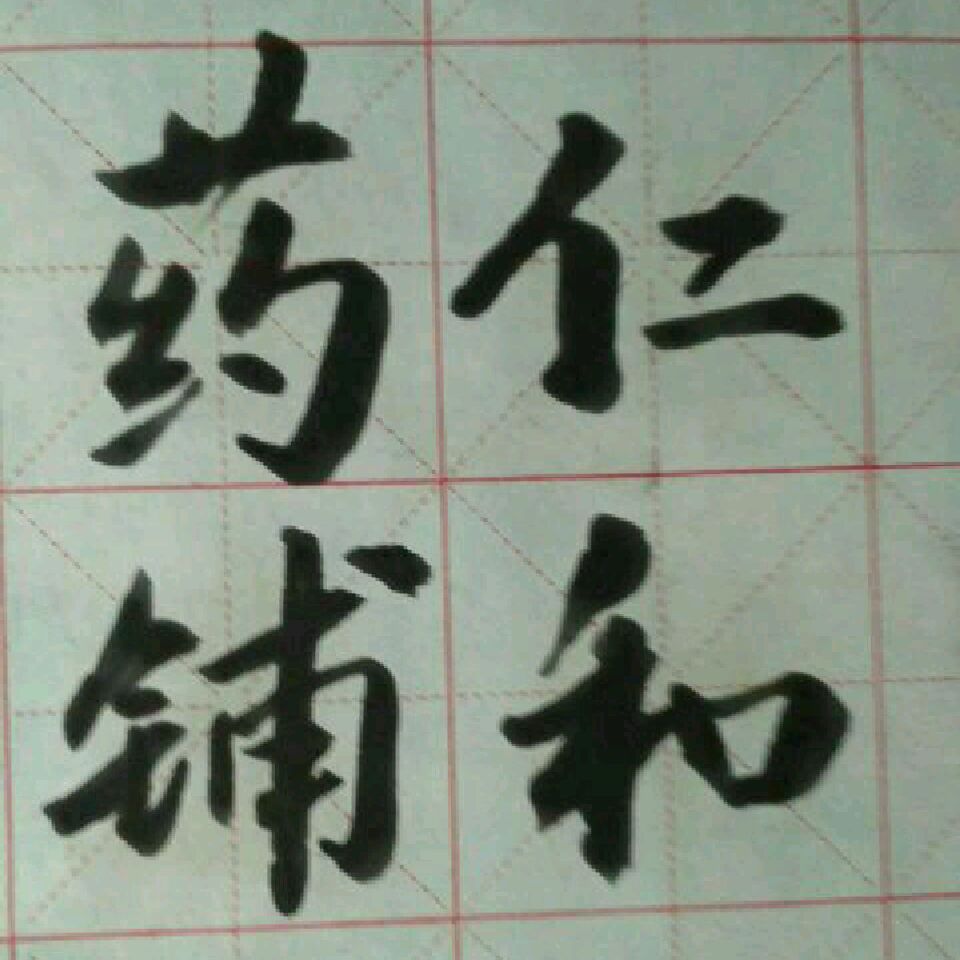 仁和
药铺